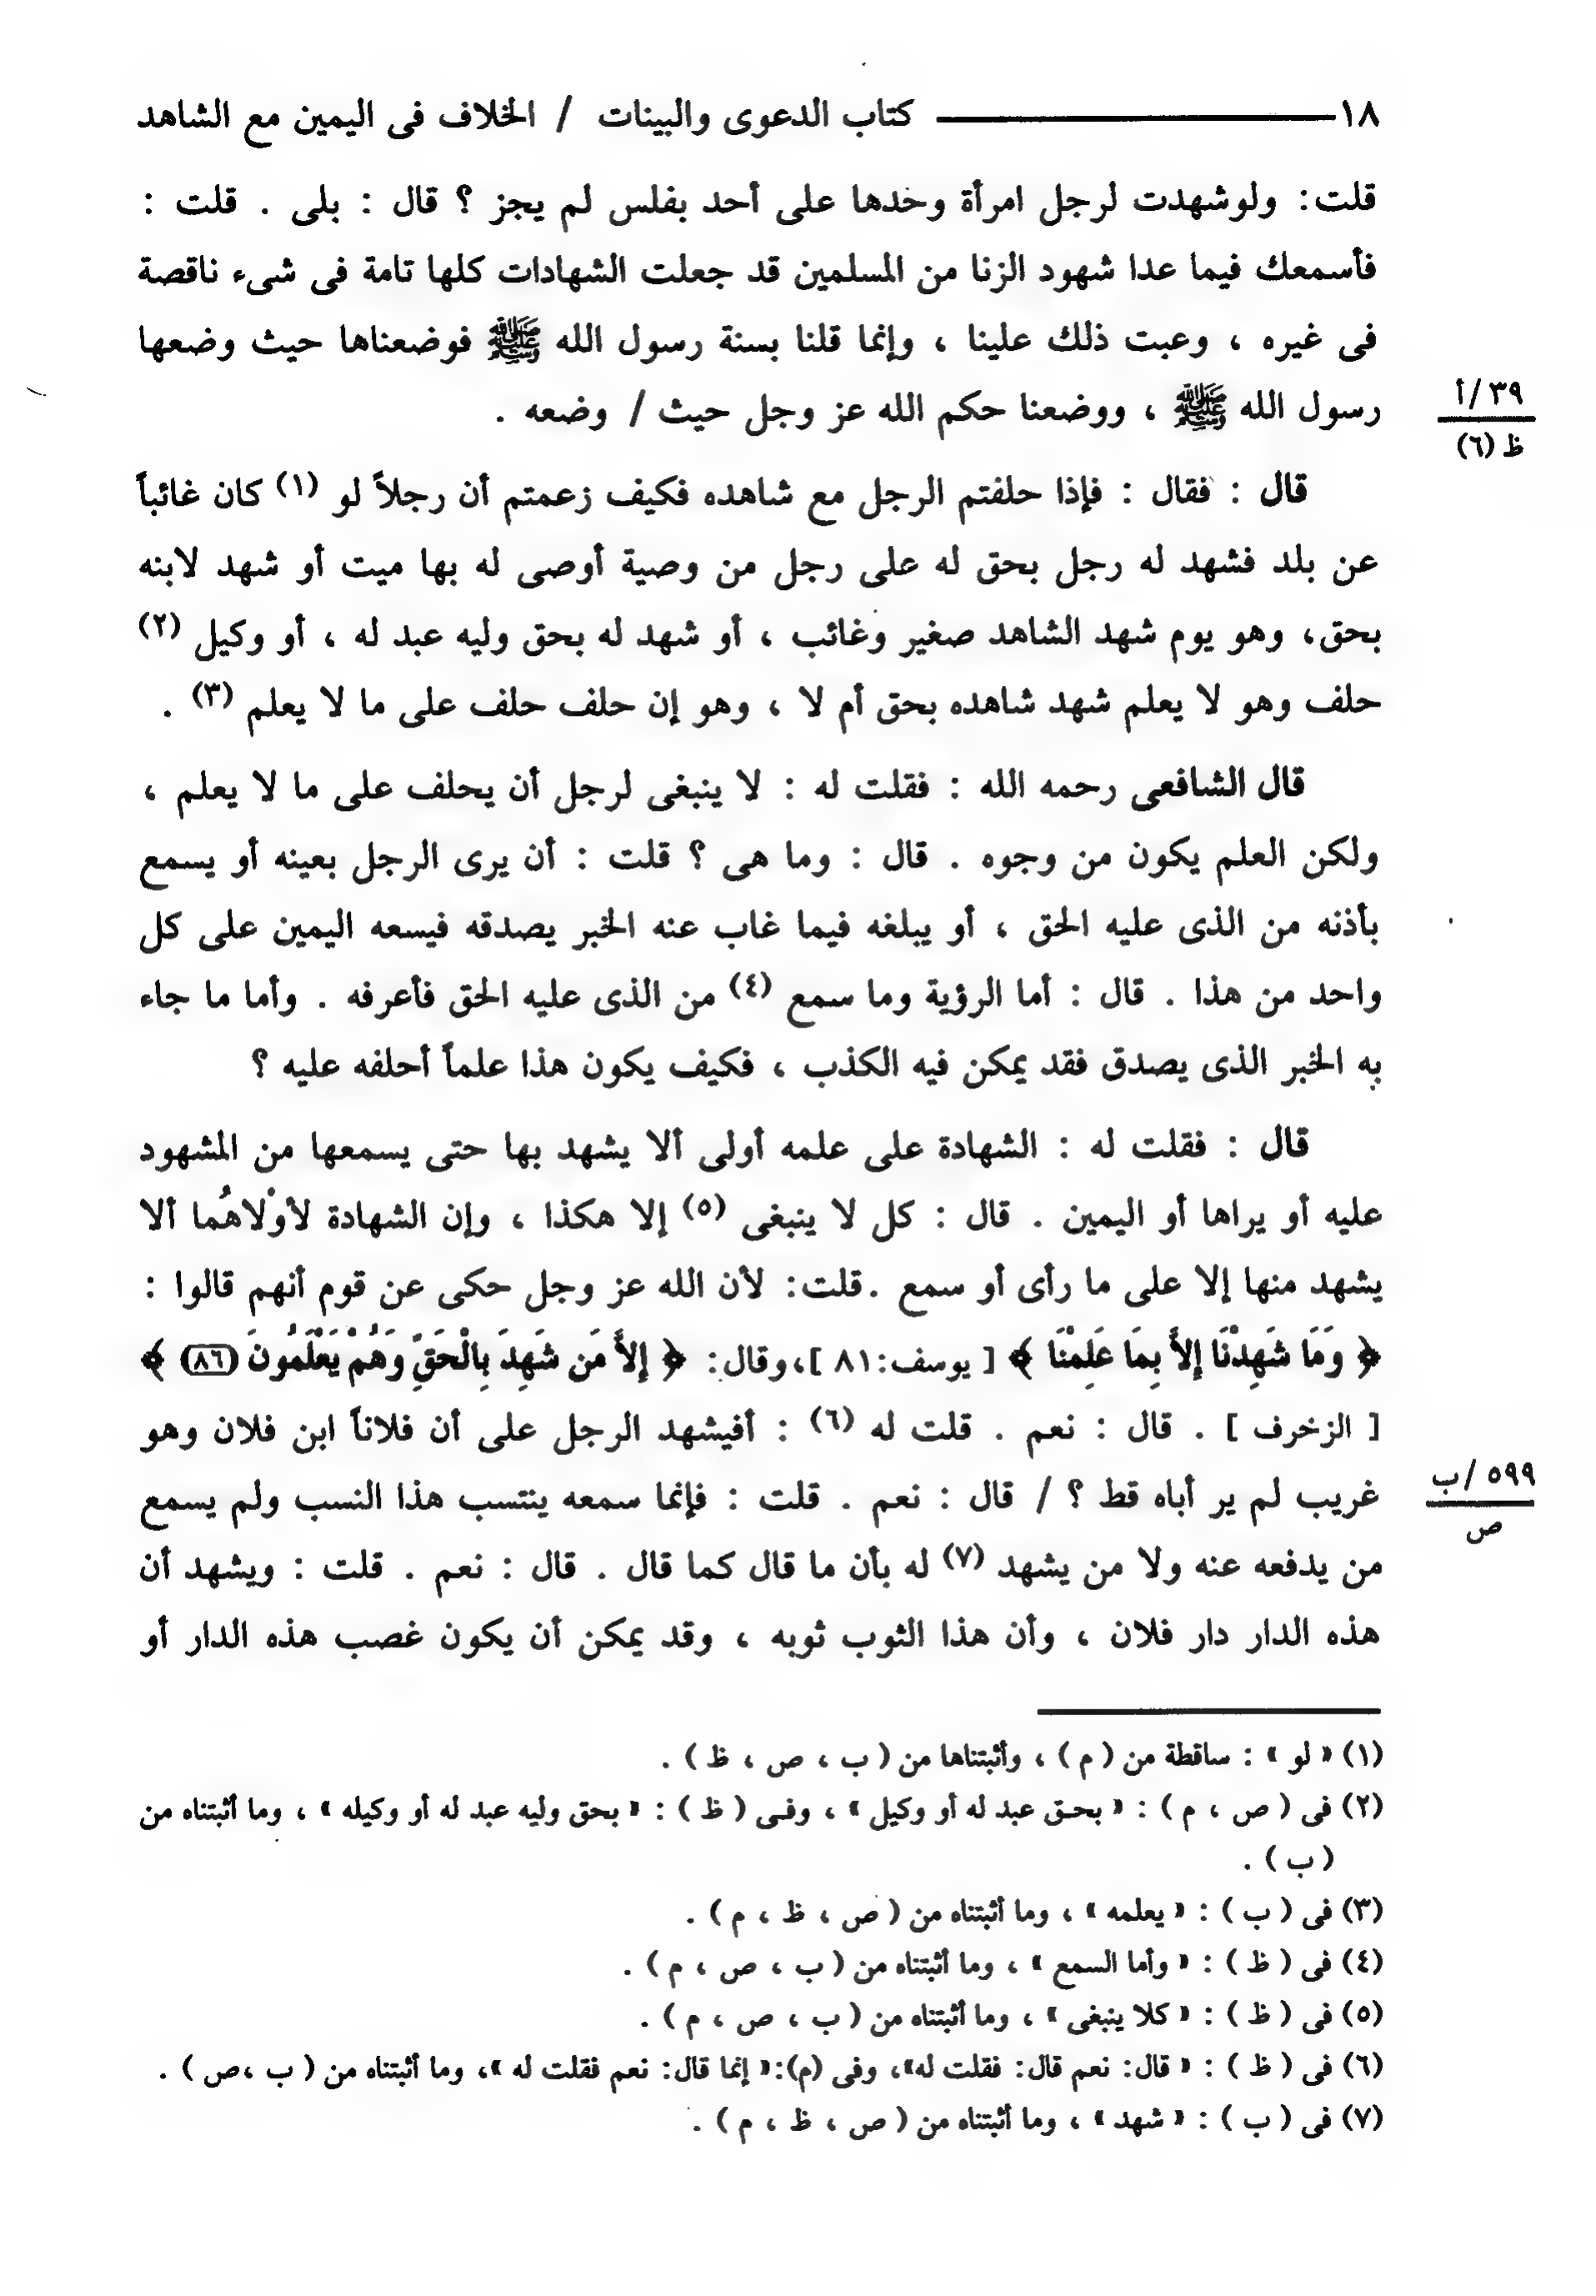 ١٨ ـــــــــ كتاب الدعوى والبينات / الخلاف فى اليمين مع الشاهد
قلت: ولوشهدت لرجل امرأة وحدها على أحد بفلس لم يجز ؟ قال : بلى . قلت :
فأسمعك فيما عدا شهود الزنا من المسلمين قد جعلت الشهادات كلها تامة فى شىء ناقصة
فى غيره ، وعبت ذلك علينا ، وإنما قلنا بسنة رسول الله ﷺ فوضعناها حيث وضعها
رسول الله ﷺ ، ووضعنا حكم الله عز وجل حيث / وضعه .
٣٩/أ
ظ (٦)
قال : فقال : فإذا حلفتم الرجل مع شاهده فكيف زعمتم أن رجلاً لو (١) كان غائباً
عن بلد فشهد له رجل بحق له على رجل من وصية أوصى له بها ميت أو شهد لابنه
بحق، وهو يوم شهد الشاهد صغير وغائب ، أو شهد له بحق وليه عبد له ، أو وكيل (٢)
حلف وهو لا يعلم شهد شاهده بحق أم لا ، وهو إن حلف حلف على ما لا يعلم (٣) .
قال الشافعى رحمه الله : فقلت له : لا ينبغى لرجل أن يحلف على ما لا يعلم ،
ولكن العلم يكون من وجوه . قال : وما هى ؟ قلت : أن يرى الرجل بعينه أو يسمع
بأذنه من الذى عليه الحق ، أو يبلغه فيما غاب عنه الخبر يصدقه فيسعه اليمين على كل
واحد من هذا . قال : أما الرؤية وما سمع (٤) من الذى عليه الحق فأعرفه . وأما ما جاء
به الخبر الذى يصدق فقد يمكن فيه الكذب ، فكيف يكون هذا علماً أحلفه عليه ؟
قال : فقلت له : الشهادة على علمه أولى ألا يشهد بها حتى يسمعها من المشهود
عليه أو يراها أو اليمين . قال : كل لا ينبغى (٥) إلا هكذا ، وإن الشهادة لأوْلاهُما ألا
يشهد منها إلا على ما رأى أو سمع .قلت: لأن الله عز وجل حكى عن قوم أنهم قالوا :
﴿ وَمَا شَهِدْنَا إِلاَّ بِمَا عَلِمْنَا ﴾ [ يوسف: ٨١ ]، وقال: ﴿ إِلاَّ مَن شَهِدَ بِالْحَقِّ وَهُمْ يَعْلَمُونَ (٨٦) ﴾
[ الزخرف ] . قال : نعم . قلت له (٦) : أفيشهد الرجل على أن فلاناً ابن فلان وهو
غريب لم ير أباه قط ؟ / قال : نعم . قلت : فإنما سمعه ينتسب هذا النسب ولم يسمع
٥٩٩/ب
ص
من يدفعه عنه ولا من يشهد (٧) له بأن ما قال كما قال . قال : نعم . قلت : ويشهد أن
هذه الدار دار فلان ، وأن هذا الثوب ثوبه ، وقد يمكن أن يكون غصب هذه الدار أو
(١) « لو » : ساقطة من ( م ) ، وأثبتناها من ( ب ، ص ، ظ ) .
(٢) فى ( ص ، م ) : « بحق عبد له أو وكيل » ، وفى ( ظ ) : « بحق وليه عبد له أو وكيله » ، وما أثبتناه من
( ب ) .
(٣) فى ( ب ) : « يعلمه » ، وما أثبتناه من ( ص ، ظ ، م ) .
(٤) فى ( ظ ) : « وأما السمع » ، وما أثبتناه من ( ب ، ص ، م ) .
(٥) فى ( ظ ) : « كلا ينبغى » ، وما أثبتناه من ( ب ، ص ، م ) .
(٦) فى ( ظ ) : « قال: نعم قال: فقلت له»، وفى (م):« إنما قال: نعم فقلت له »، وما أثبتناه من ( ب ،ص ) .
(٧) فى ( ب ) : « شهد » ، وما أثبتناه من ( ص ، ظ ، م ) .